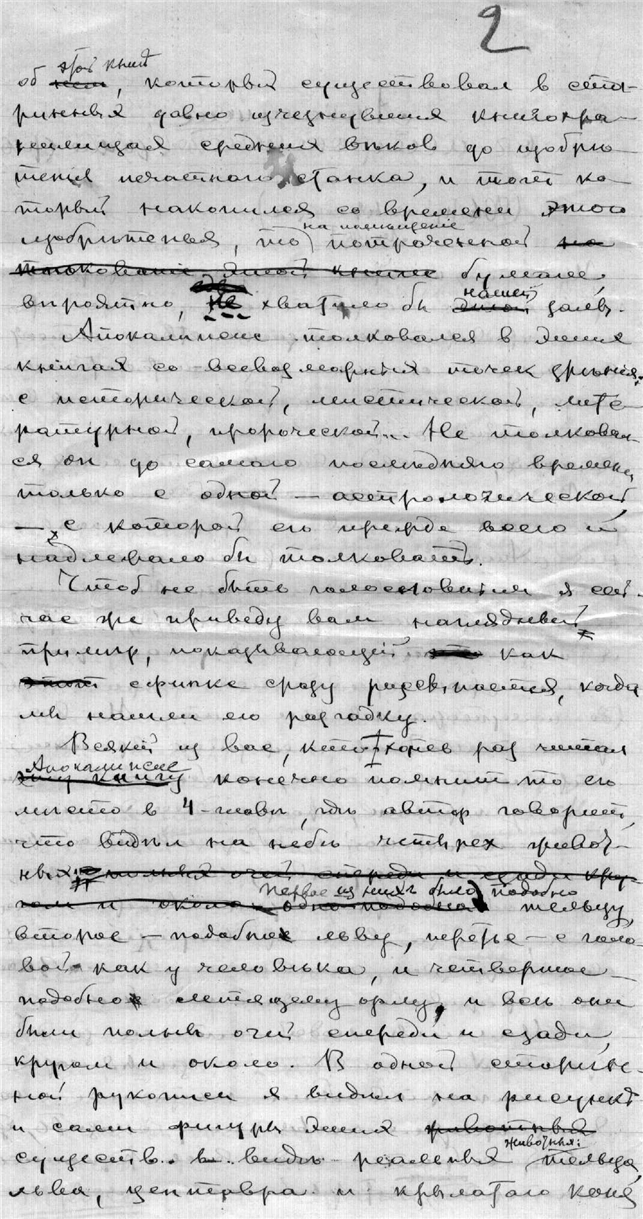 2
этой книге
об нем, который существовал в ста-
ринных давно исчезнувших книгохра-
нилищах средних вѣков до изобрѣ-
тения печатного станка, и тот ко-
торый накопился со времени этого
на помещение
изобрѣтенья, то потраченной на
толкование этой книги бумаге,
вероятно, не хватило бы нашей залы.
Апокалипсис толковался в этих
книгах со всевозможных точек зрѣния:
с исторической, мистической, лите-
ратурной, пророческой... Не толковал-
ся он до самого последняго времени
только с одной — астрологической,
— с которой его прежде всего и
надлежало бы толковать.
Чтоб не быть голословным я сей-
час же приведу вам наглядный
пример, показывающий как
сфинкс сразу рассыпается, когда
мы нашли его разгадку.
Всякий из вас, кто хоть раз читал
Апокалипсис
эту книгу конечно помнит то его
мѣсто в 4 главѣ, гдѣ автор говорит,
что видѣл на небѣ четырех живот-
ных полных очей спереди и сзади кру-
первое из них было подобно
гом и около одно подобно тельцу,
второе — подобно льву, третье — с голо-
вой как у человѣка, и четвертое —
подобно летящему орлу, и всѣ они
были полны очей спереди и сзади,
кругом и около. В одной старин-
ной рукописи я видѣл на рисункѣ
и сами фигуры этих животных
животных:
существ в видѣ реальных тельца,
льва, центавра и крылатаго коня